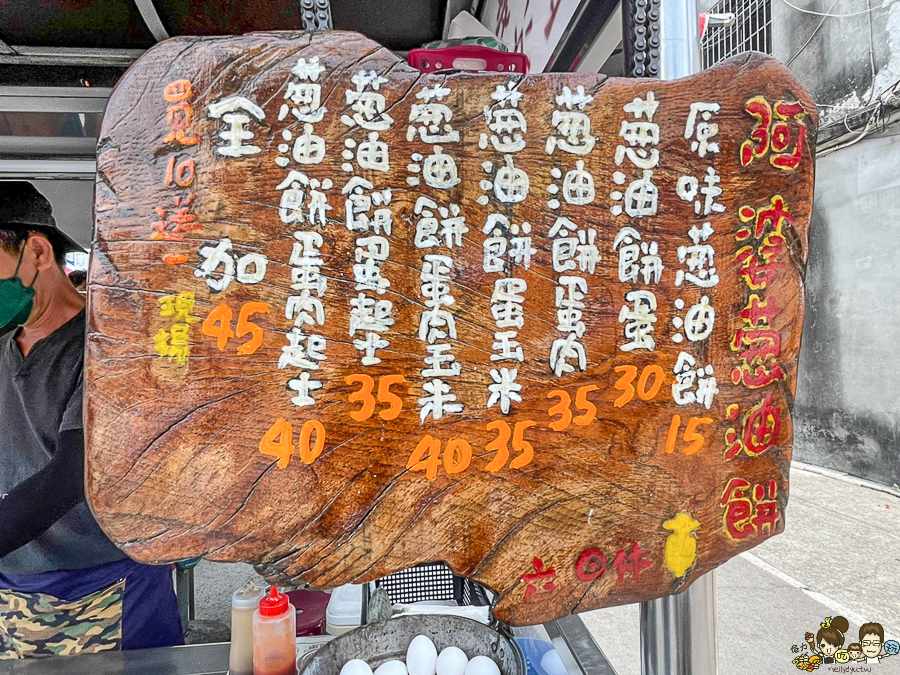 阿婆葱油餅
原味葱油餅 15
葱油餅蛋 30
葱油餅蛋肉 35
葱油餅蛋玉米 35
葱油餅蛋肉玉米 40
葱油餅蛋起士 35
葱油餅蛋肉起士 40
全加 45
買10送一
現場
nellydyu.tw